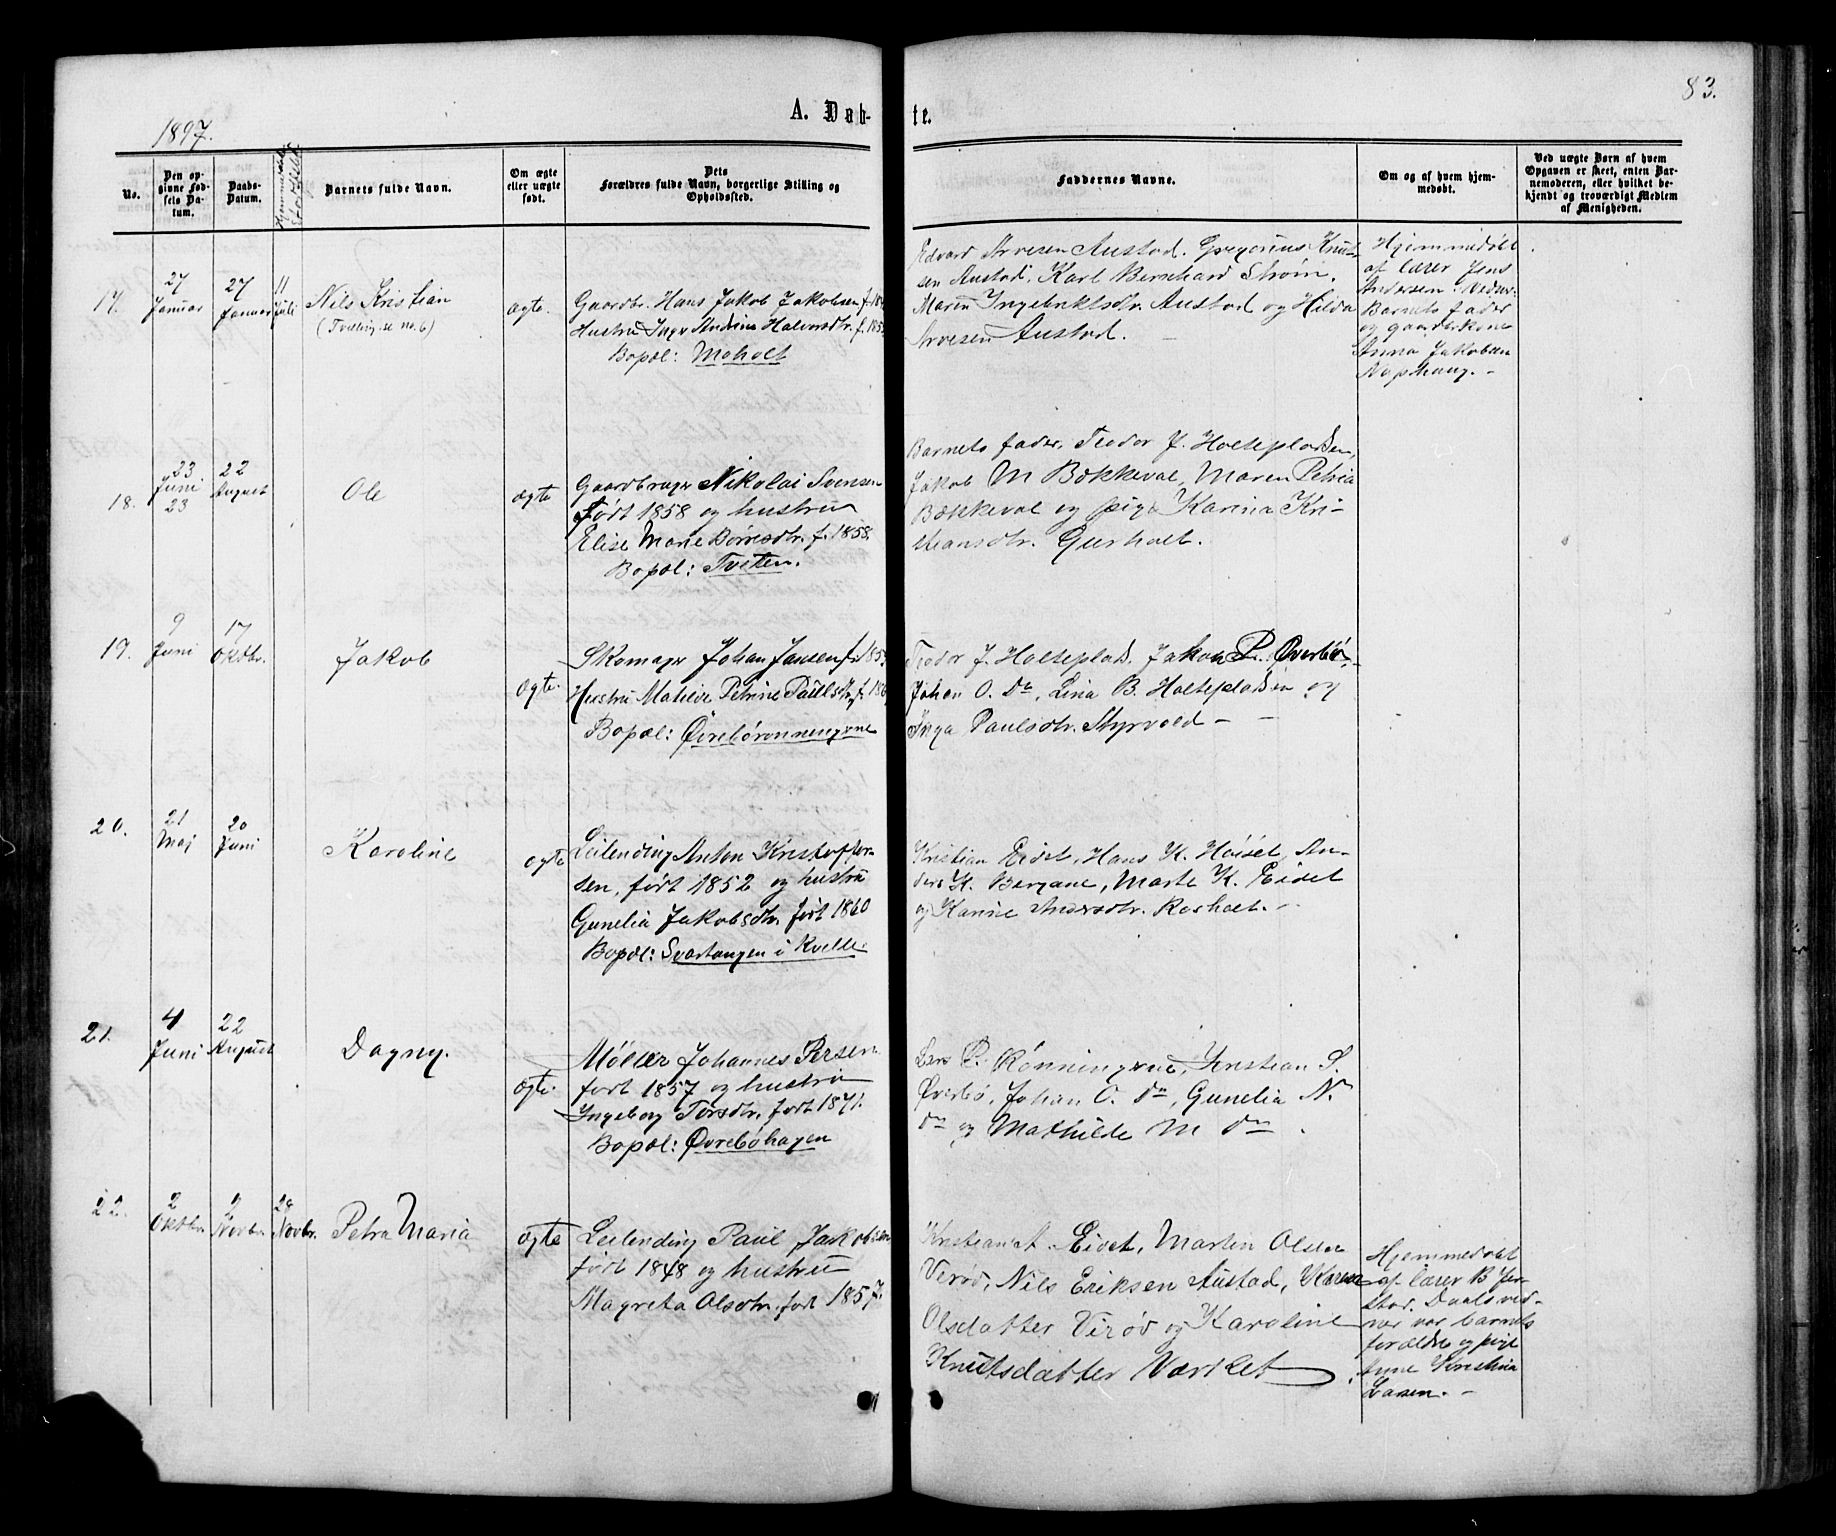 83.
1897.
A. Døb-
te.
No.
Den op-
givne Fød-
sels Da-
tum.
Daabs-
Datum.
Barnets fulde Navn.
Om ægte
eller uægte
født.
Dets
Forældres fulde Navn, borgerlige Stilling og
Opholdssted.
Faddernes Navne.
Om og af hvem hjem-
medøbt.
Ved uægte Børn af hvem
Opgaven er skeet, enten Bar-
nemoderen, eller hvilket be-
kjendt og troværdigt Medlem
af Menigheden.
17.
27
Januar
27
Januar
11
Juli
Nils Kristian
(Tvilling se no. 6)
ægte.
Gaardbr. Hans Jakob Jakobsen f.
Hustru Inger Andrine Halvorsdtr. f.
Bopæl: Moholt
Edvard Arvesen Austad. Gregorius Knut-
sen Austad, Karl Bernhard Strøm.
Maren Ingebriktsdtr. Austad og Hilda
Arvesen Austad.
Hjemmedøbt
af lærer Jens
Andersen. Vidner
Barnets fader
og gaarderkone
Anna Jakobsen
Naphaug. -
18.
23
Juni
23
22
August
Ole
ægte
Gaardbruger Nikolai Svensen
født 1858 og hustru
Elise Marie Børresdtr. f. 1858.
Bopæl: Tveten.
Barnets fader, Teodor J. Holtepladsen,
Jakob M Bækkevar, Maren Petria
Bækkevar og pige Karina Kri-
stiansdtr. Gurholt.
19.
9
Juni
17
Oktbr.
Jakob
ægte.
Skomager Johan Jansen f. 185
Hustru Matilde Petrine Paulsdtr. f. 186
Bopæl: Øvrebørønningerne
Teodor J. Holteplads. Jakob P. Øverbø,
Johan O. do, Lina B. Holtepladsen og
Inga Paulsdtr. Styrvold -
20.
21
Maj
20
Juni
Karoline
ægte
Leilending Anton Kristoffer-
sen, født 1852 og hustru
Gunelia Jakobsdtr. født 1860
Bopæl: Svartangen i Kvelle.
Kristian Eidet, Hans K. Høiset, An-
ders K. Bergane, Marte K. Eidet
og Karine Andersdtr. Rasholt. -
21.
4
Juni
22
August
Dagny.
ægte.
Møller Johannes Persen
født 1857 og hustru
Ingeborg Torsdtr. født 1871.
Bopæl: Øvrebøhagen
Lars P. Rønningerne, Kristian S.
Øverbø, Johan O. do, Gunelia N.
do og Mathilde M do.
22.
2
Oktbr.
2
Novbr.
28
Novbr.
Petra Maria
ægte
Leilending Paul Jakobsen
født 1848 og hustru
Magreta Olsdtr. født 1857.
Kristian Eidet, Martin Olsen
Verød, Nils Eriksen Austad, Karen
Olsdatter Virød og Karoline
Knutsdatter Værket
Hjemmedøbt
af lærer B Jer-
stad. Daabsvid-
ner var barnets
forældre og pige
Anne Kristina
Larsen. -